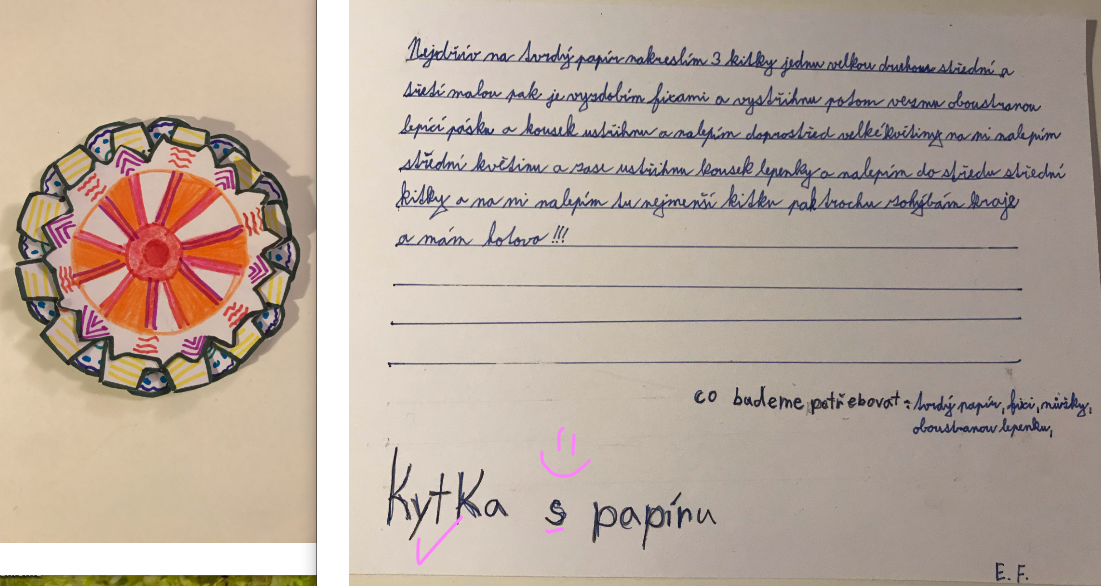 Nejdřív na tvrdý papír nakreslím 3 kitky jednu velkou druhou střední a
třetí malou pak je vyzdobím fixami a vystřihnu potom vezmu oboustranou
lepící pásku a kousek ustřihnu a nalepím doprostřed velké květiny na mi nalepím
střední květinu a zase ustřihnu kousek lepenky a nalepím do středu střední
kitky a na mi nalepím tu nejmenší kitku pak trochu zohýbám kraje
a mám hotovo !!!
co budeme potřebovat: tvrdý papír, fixi, nůžky,
oboustranou lepenku,
Kytka s papínu
E. F.